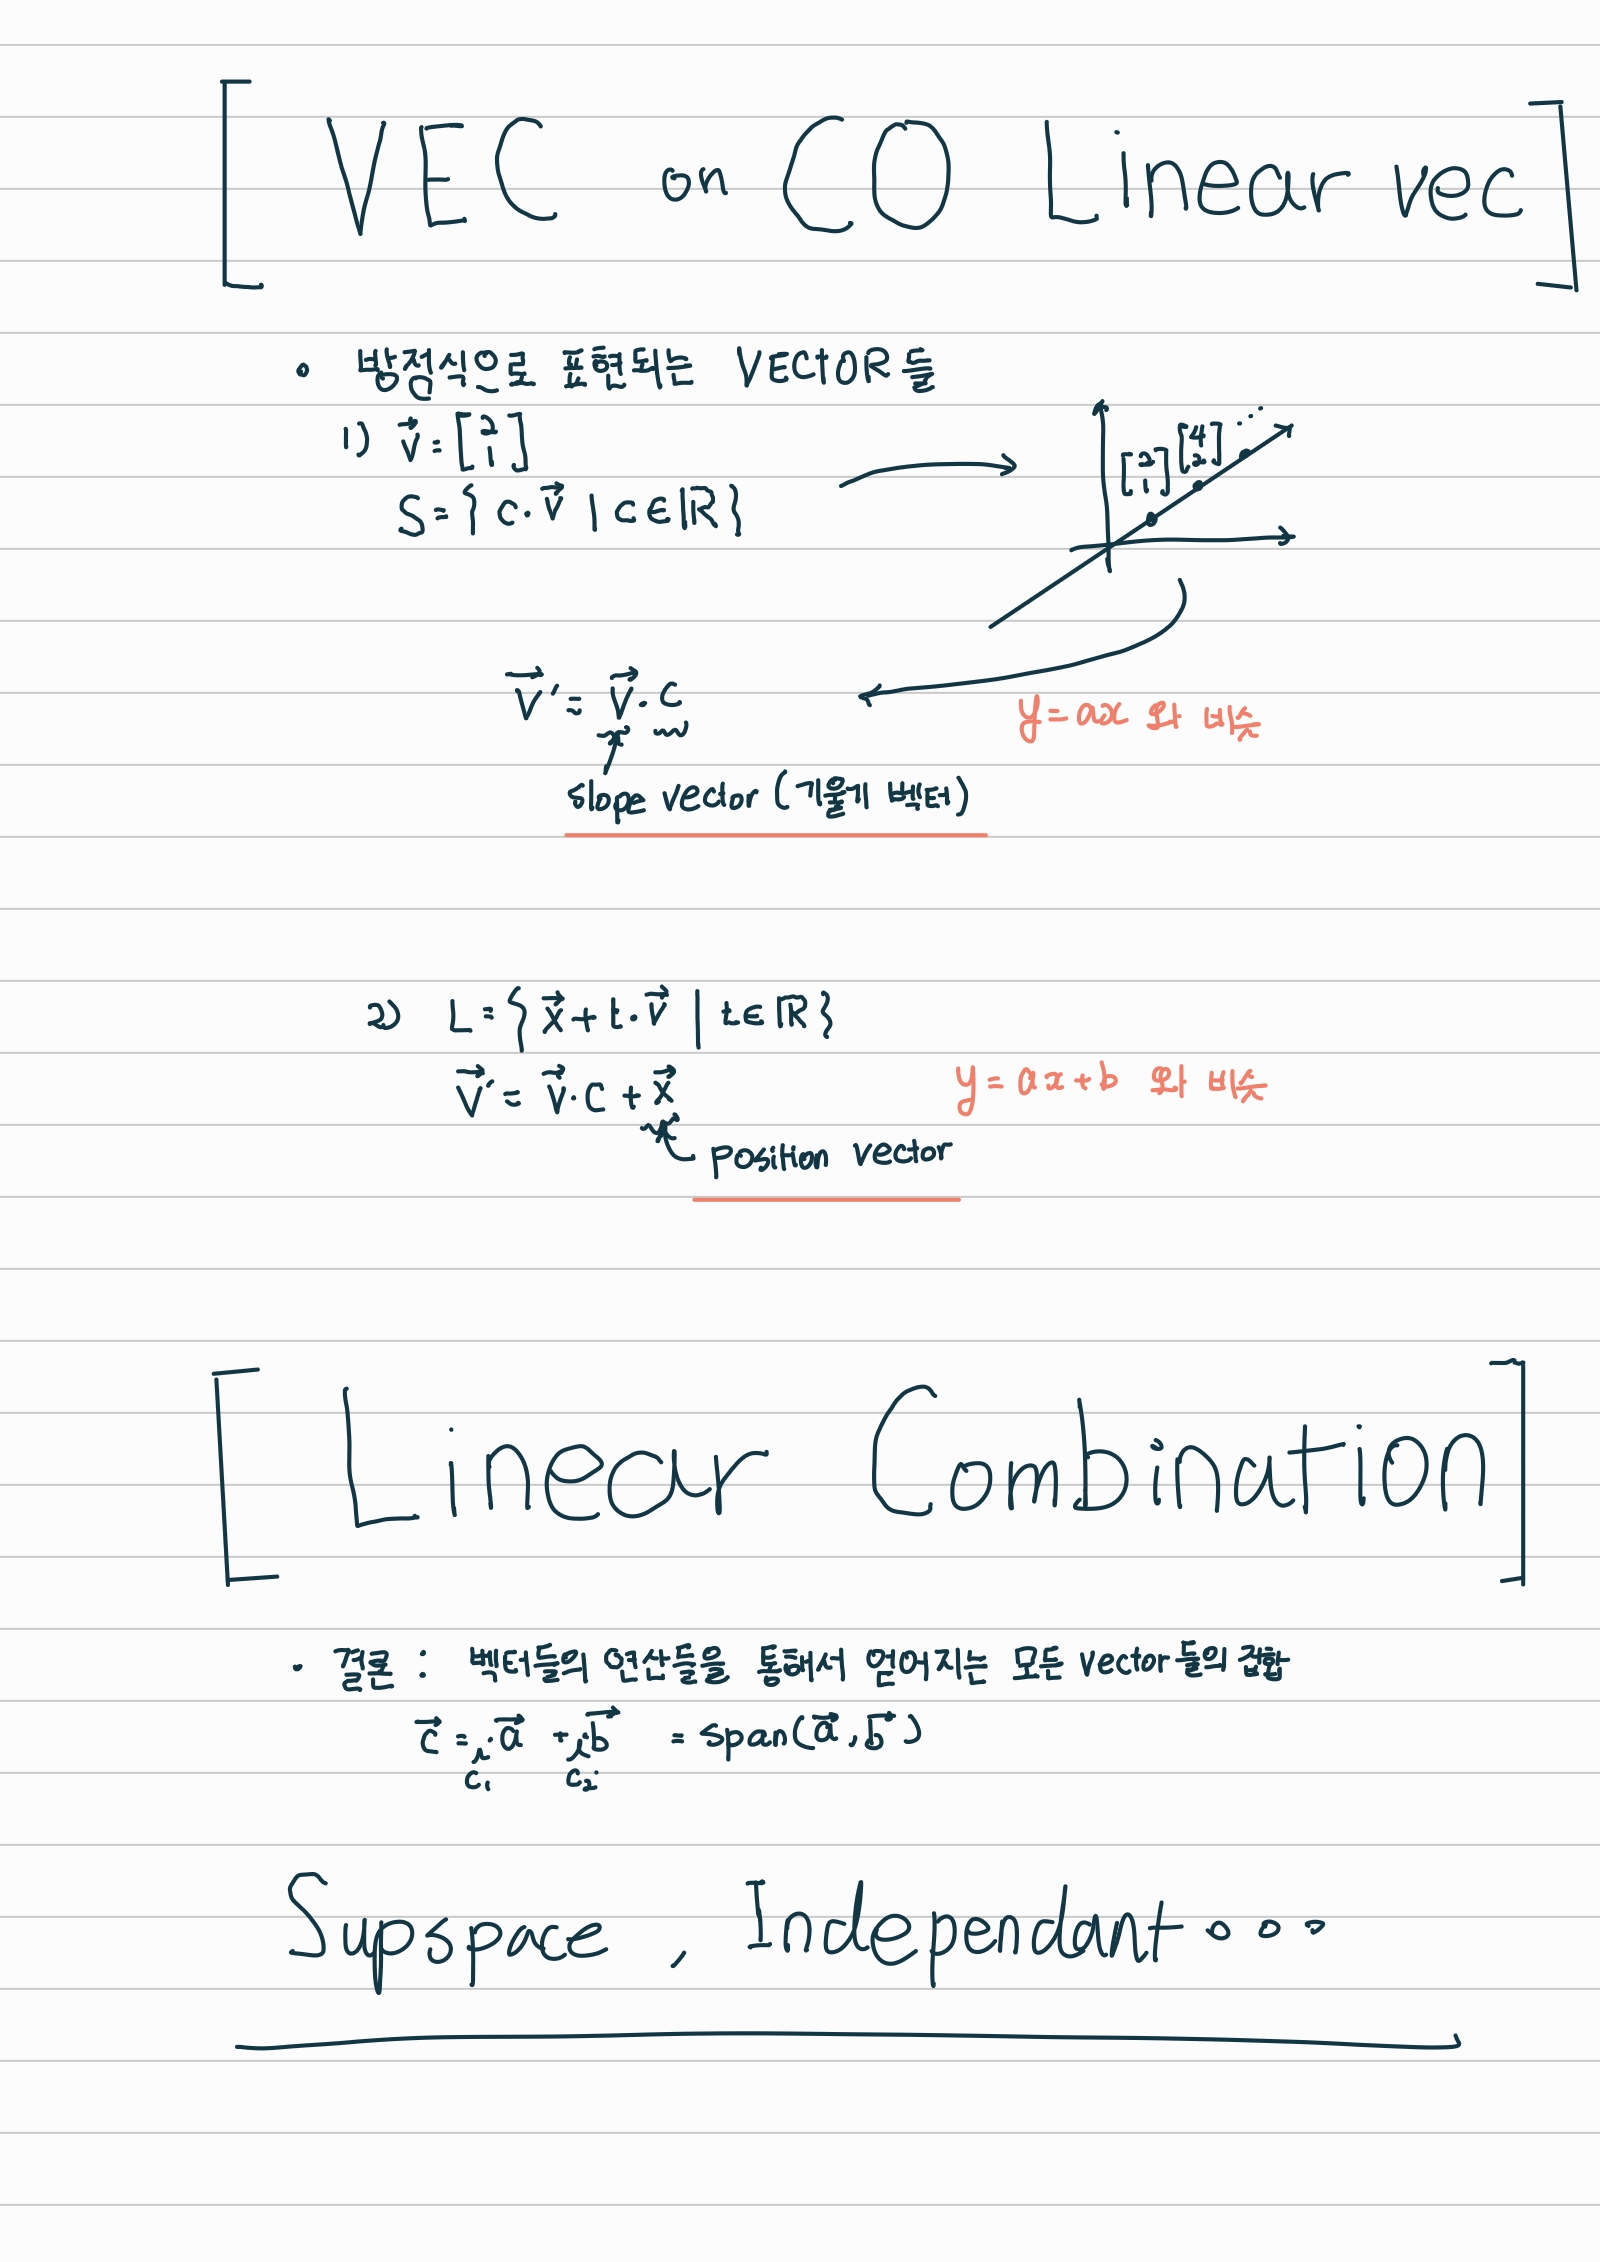 [ VEC on CO Linear vec ]
• 방정식으로 표현되는 VECTOR들
1) v⃗ = [2 1]
S = { c · v⃗ | c ∈ ℝ }
[2 1] [4 2] ...
v⃗' = v⃗ · c
y = ax 와 비슷
slope vector (기울기 벡터)
2) L = { x⃗ + t · v⃗ | t ∈ ℝ }
v⃗' = v⃗ · c + x⃗
y = ax + b 와 비슷
position vector
[ Linear Combination ]
• 결론 : 벡터들의 연산들을 통해서 얻어지는 모든 vector들의 집합
c⃗ = · a⃗ + · b⃗ = span(a⃗, b⃗)
c₁ c₂
Supspace , Independant ...